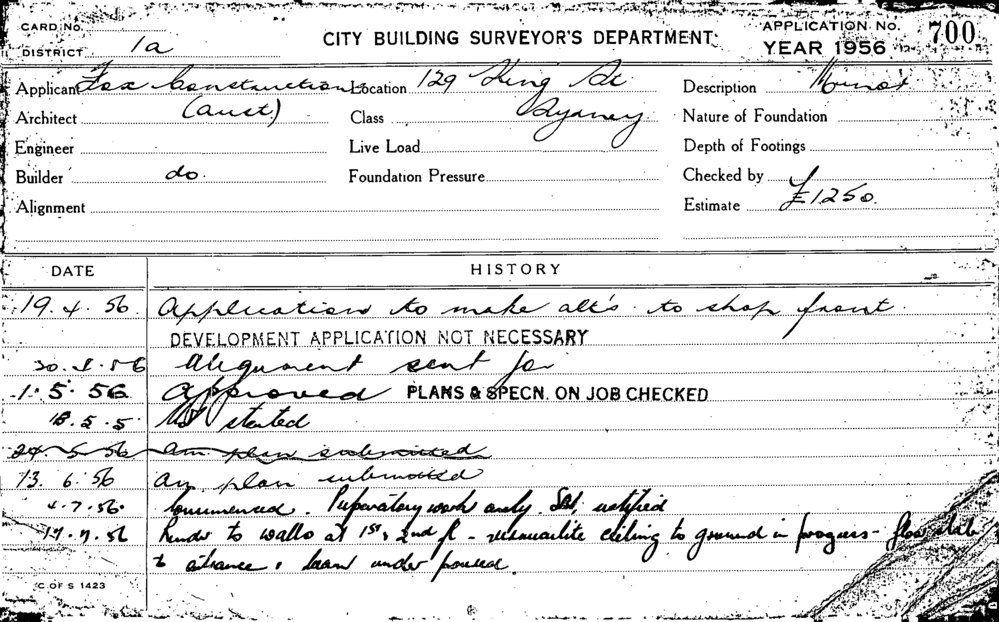 CARD NO.
DISTRICT 1a
CITY BUILDING SURVEYOR'S DEPARTMENT.
APPLICATION NO. 700
YEAR 1956
Applicant Fox Constructions Location 129 King St Description
Architect (Aust) Class Sydney Nature of Foundation
Engineer Live Load Depth of Footings
Builder do. Foundation Pressure Checked by
Alignment Estimate £1250.
DATE HISTORY
19.4.56 Application to make alt's to shop front.
DEVELOPMENT APPLICATION NOT NECESSARY
20.4.56 Alignment sent for
1.5.56 Approved PLANS & SPECN. ON JOB CHECKED
18.5.5 Not started
24.5.56 am plan submitted
13.6.56 am plan submitted
4.7.56. Commenced. Preparatory work only. notified
17.7.56 Render to walls at 1st, 2nd fl - ceiling to ground in progress - floor slab
to entrance, beam under poured.
C. OF S 1423